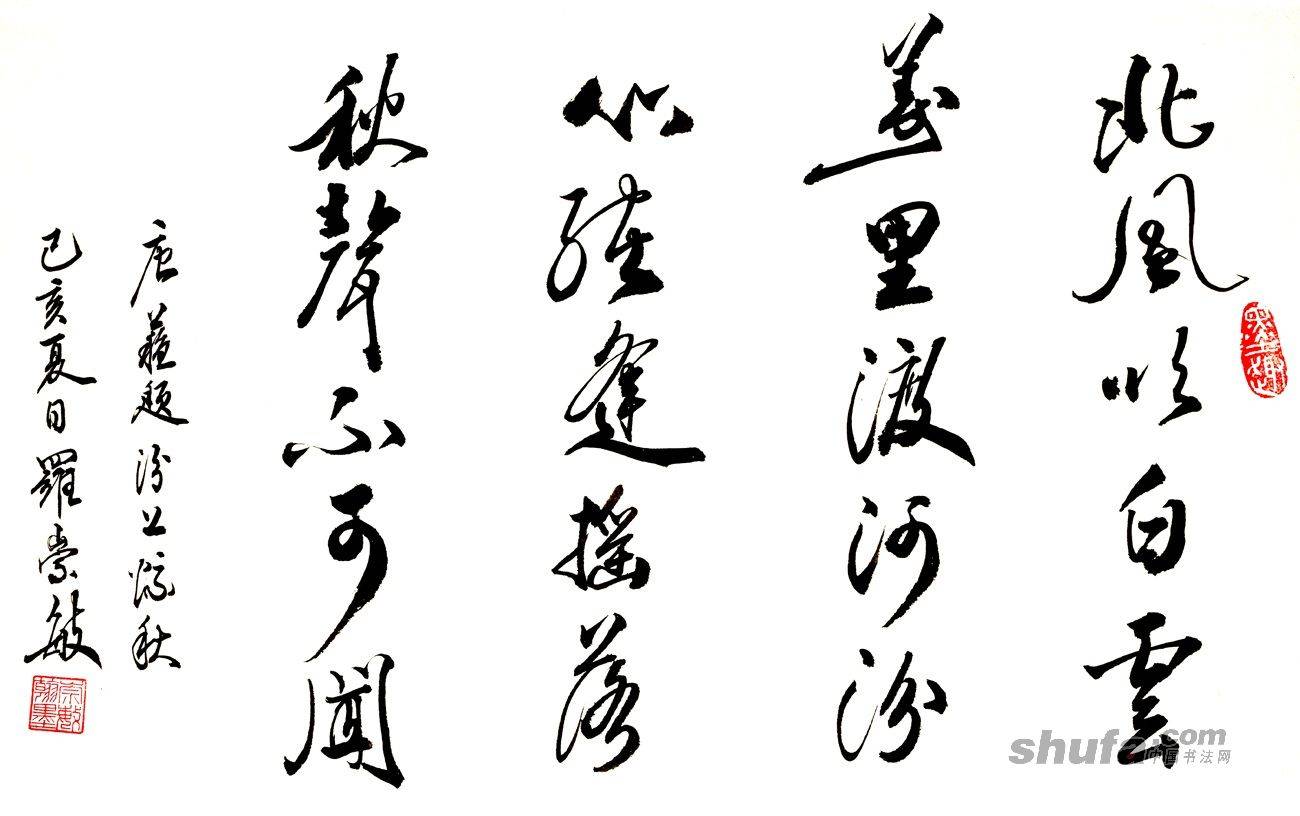 北風吹白雲
萬里渡河汾
心緒逢搖落
秋聲不可聞
唐蘇頲汾上驚秋
己亥夏日羅崇敏
崇敏翰墨
shufa.com
中国书法网